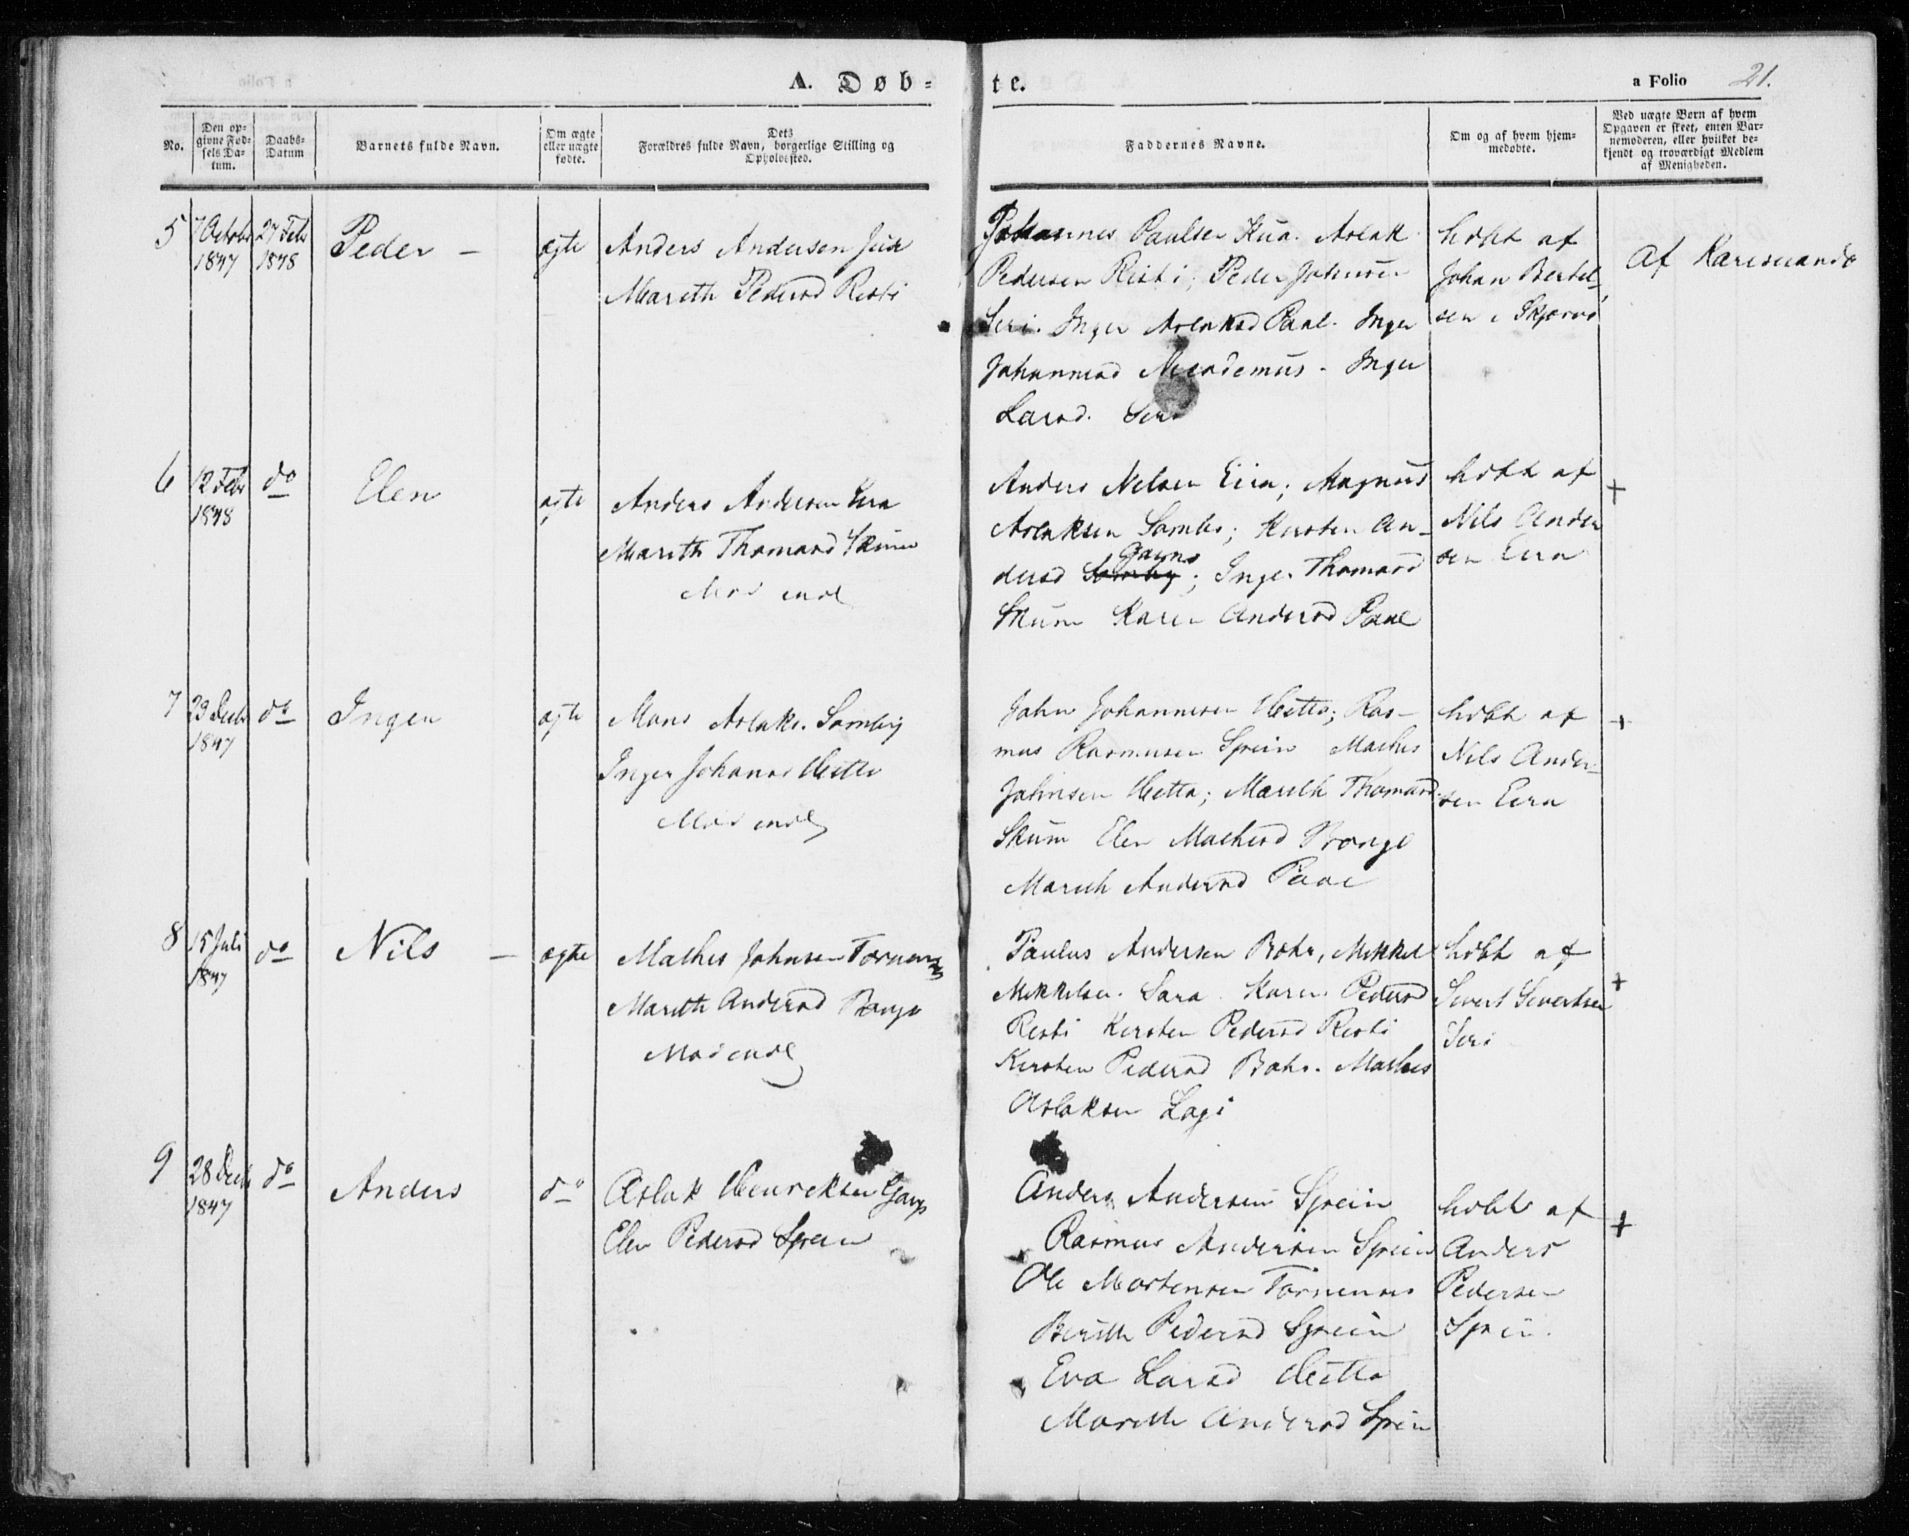 A. Døb=
te.
a Folio 21.
No.
Den op=
givne Fød=
sels Da=
tum.
Daabs=
Datum
Barnets fulde Navn.
Om ægte
eller uægte
fødte.
Dets
Forældres fulde Navn, borgerlige Stilling og
Opholdssted.
Faddernes Navne.
Om og af hvem hjem=
medøbte.
Ved uægte Børn af hvem
Opgaven er skeet, enten Bar=
nemoderen, eller hvilket be=
kjendt og troværdigt Medlem
af Menigheden.
5
7 Octobr
1847
27 Feb
1848
Peder –
ægte
Anders Andersen
Mareth Pedersd Risti
Johannes Paulsen Kua. Aslak
Pedersen Risti; Peder Johnsen
Seri. Inger Aslaksd Paal. Inger
Johannesd Nicodemus - Inger
Larsd. Seri
hdbt af
Johan Bertel-
sen i Skjervø
af Karesuando
6
12 Feb
1848
do
Elen
ægte
Anders Andersen Eira
Mareth Thomasd Skum
Mos indl
Anders Nelsen Eira; Magnus
Aslaksen Sombi; Kirsten An-
Gavno
dersd Somby; Inger Thomasd
Skum Karen Andersd Paal
hdbt af
Nils Ander
sen Eira
+
7
29 Decb
1847
do
Inger
ægte
Mons Aslaks. Somby
Inger Johansd Hetta
Mos indl
John Johannesen Hetta; Ras-
mus Rasmusen Spein Mathis
Johnsen Hetta; Mareth Thomasd
Skum Elen Mathisd Prange
Mareth Andersd Paal
hdbt af
Nils Ander-
sen Eira
+
8
15 Juli
1847
do
Nils –
ægte
Mathis Johnsen Tornensis
Mareth Andersd Prange
Mos indl
Paulus Andersen Bahr, Mikkel
Mikkelsen. Sara. Karen Pedersd
Risti Kirsten Pedersd Risti
Kirsten Pedersd Bahr. Mathis
Aslaksen Lagi
hdbt af
Sivert Sivertsen
Seri
+
9
28 Decb
1847
do
Anders
do
Aslak Henreksen Gavp
Elen Pedersd Spein
Anders Andersen Spein
Rasmus Andersen Spein
Ole Mortensen Tornensis
Berith Pedersd Spein
Eva Larsd Hetta
Mareth Andersd Spein
hdbt af
Anders
Pedersen
Spein.
+